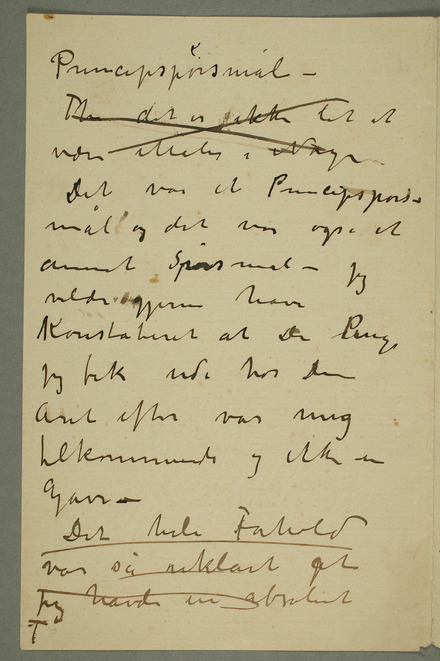 Principspörsmål –
Men det er ikke let at
være Maler i Norge
Det var et Principspörs-
mål og det var også et
annet Spörsmål – jeg
vilde gjerne have
Konstateret at De Penge
jeg fik ude hos Dem
Året efter var mig
tilkommende og ikke en
Gave –
Det hele Forhold
var så uklart at
jeg havde en absolut